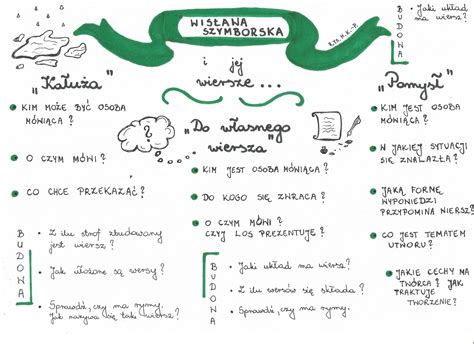 WISŁAWA
SZYMBORSKA
Rys. M.K.-P.
i jej
wiersze...
"Kałuża"
KIM MOŻE BYĆ OSOBA
MÓWIĄCA?
O CZYM MÓWI?
CO CHCE PRZEKAZAĆ?
BUDOWA
• Z ilu strof zbudowany
jest wiersz?
• Jak ułożone są wersy?
• Sprawdź, czy ma rymy.
Jak nazywa się taki wiersz?
"Do własnego
wiersza"
KIM JEST OSOBA MÓWIĄCA?
DO KOGO SIĘ ZWRACA?
O CZYM MÓWI?
CZYJ LOS PREZENTUJE?
BUDOWA
• Jaki układ ma wiersz?
• Z ilu wersów się składa?
• Sprawdź, czy ma rymy.
BUDOWA
• Jaki układ
ma wiersz?
"Pomysł"
KIM JEST OSOBA
MÓWIĄCA?
W JAKIEJ SYTUACJI
SIĘ ZNALAZŁA?
JAKĄ FORMĘ
WYPOWIEDZI
PRZYPOMINA WIERSZ?
CO JEST TEMATEM
UTWORU?
JAKIE CECHY MA
TWÓRCA? JAK
TRAKTUJE
TWORZENIE?